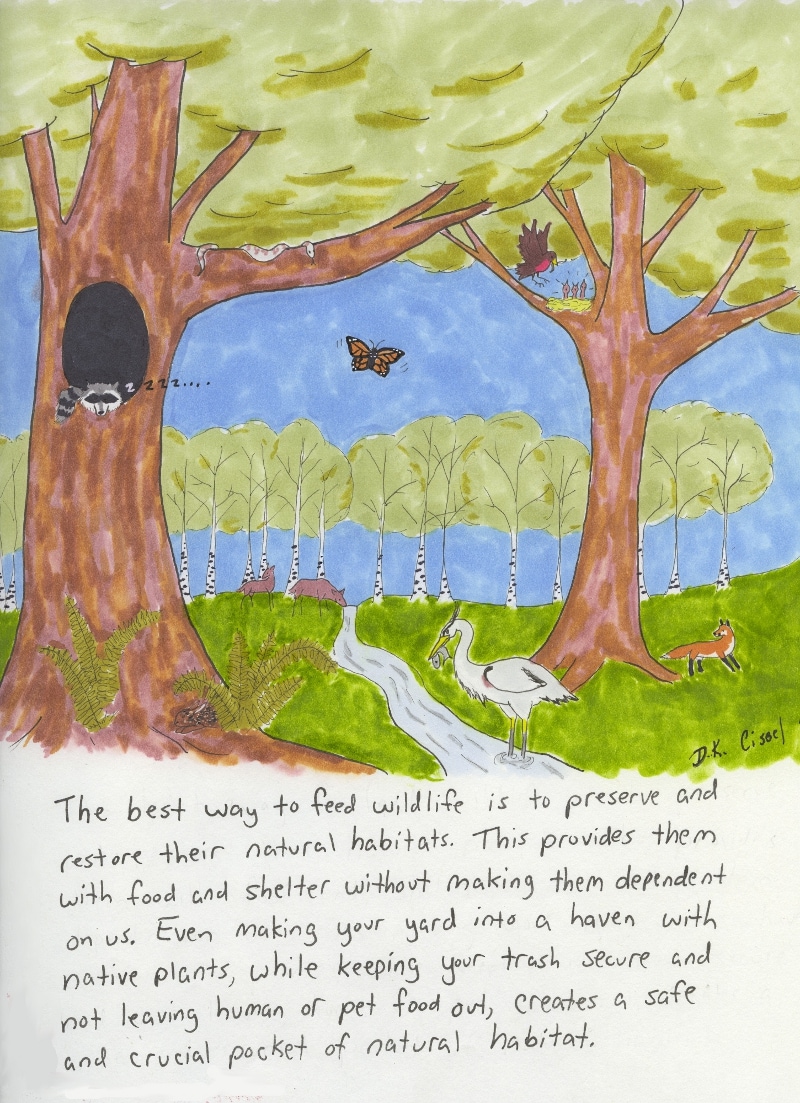 zzzz....
D.K. Cissel
The best way to feed wildlife is to preserve and
restore their natural habitats. This provides them
with food and shelter without making them dependent
on us. Even making your yard into a haven with
native plants, while keeping your trash secure and
not leaving human or pet food out, creates a safe
and crucial pocket of natural habitat.